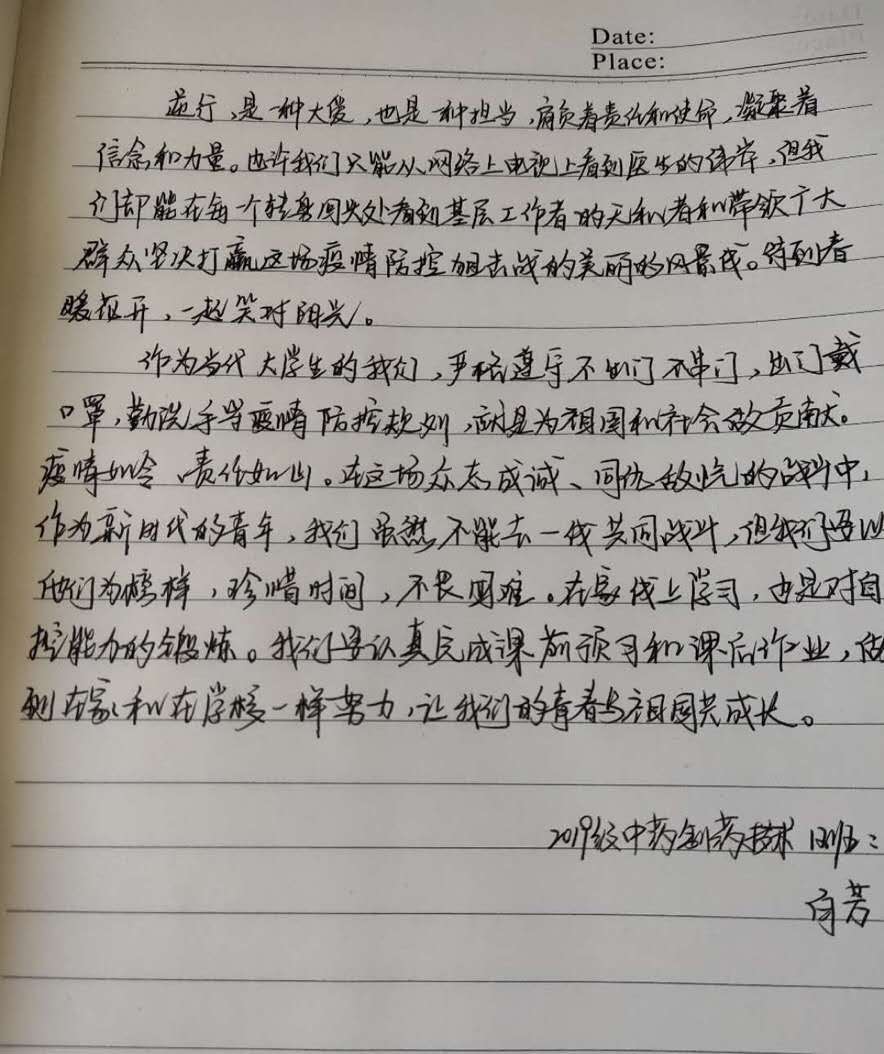 Date:
Place:
逆行，是一种大爱，也是一种担当，肩负着责任和使命，凝聚着
信念和力量。也许我们只能从网络上电视上看到医生的伟岸，但我
们却能在每一个转身回头处看到基层工作者的无私者和带领广大
群众坚决打赢这场疫情防控狙击战的美丽的风景线。待到春
暖花开，一起笑对阳光。
作为当代大学生的我们，严格遵守不出门不串门，出门戴
口罩，勤洗手等疫情防控规则，就是为祖国和社会做贡献。
疫情如令、责任如山。在这场众志成诚、同仇敌忾的战斗中，
作为新时代的青年，我们虽然不能去一线共同战斗，但我们要以
他们为榜样，珍惜时间，不畏困难。在家线上学习，也是对自
控能力的锻炼。我们要认真完成课前预习和课后作业，做
到在家和在学校一样努力，让我们的青春与祖国共成长。
2019级中药制药技术1班：
芳